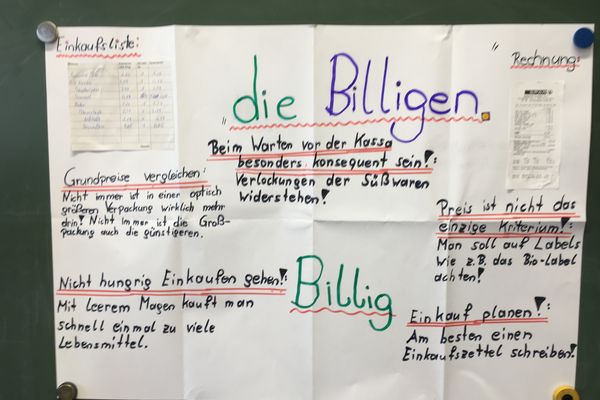 Einkaufsliste:
Rechnung:
"die Billigen"
Beim Warten vor der Kassa
besonders konsequent sein!:
Verlockungen der Süßwaren
widerstehen!
Grundpreise vergleichen:
Nicht immer ist in einer optisch
größeren Verpackung wirklich mehr
drin! Nicht immer ist die Groß-
packung auch die günstigeren.
Preis ist nicht das
einzige Kriterium!:
Man soll auf Labels
wie z.B. das Bio-label
achten!
Nicht hungrig Einkaufen gehen!:
Mit leerem Magen kauft man
schnell einmal zu viele
Lebensmittel.
Billig
Einkauf planen!:
Am besten einen
Einkaufszettel schreiben!